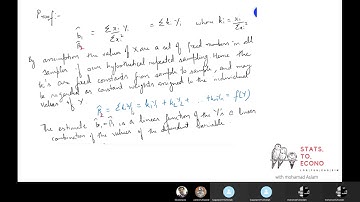 Proof:-
b̂₁ = Σxᵢyᵢ / Σxᵢ² = Σkᵢ Yᵢ where kᵢ = xᵢ / Σxᵢ²
By assumption the values of X are a set of fixed numbers in all
samples of our hypothetical repeated sampling. Hence the
kᵢ's are fixed constants from sample to sample, and may
be regarded as constant weights assigned to the individual
values of Y
β̂₁ = ΣkᵢYᵢ = k₁Y₁ + k₂Y₂ + ... + knYn = f(Y)
The estimate b̂₁ = β̂₁ is a linear function of the Y's a linear
combination of the values of the dependent variable
STATS,
TO,
ECONO
with mohamad Aslam